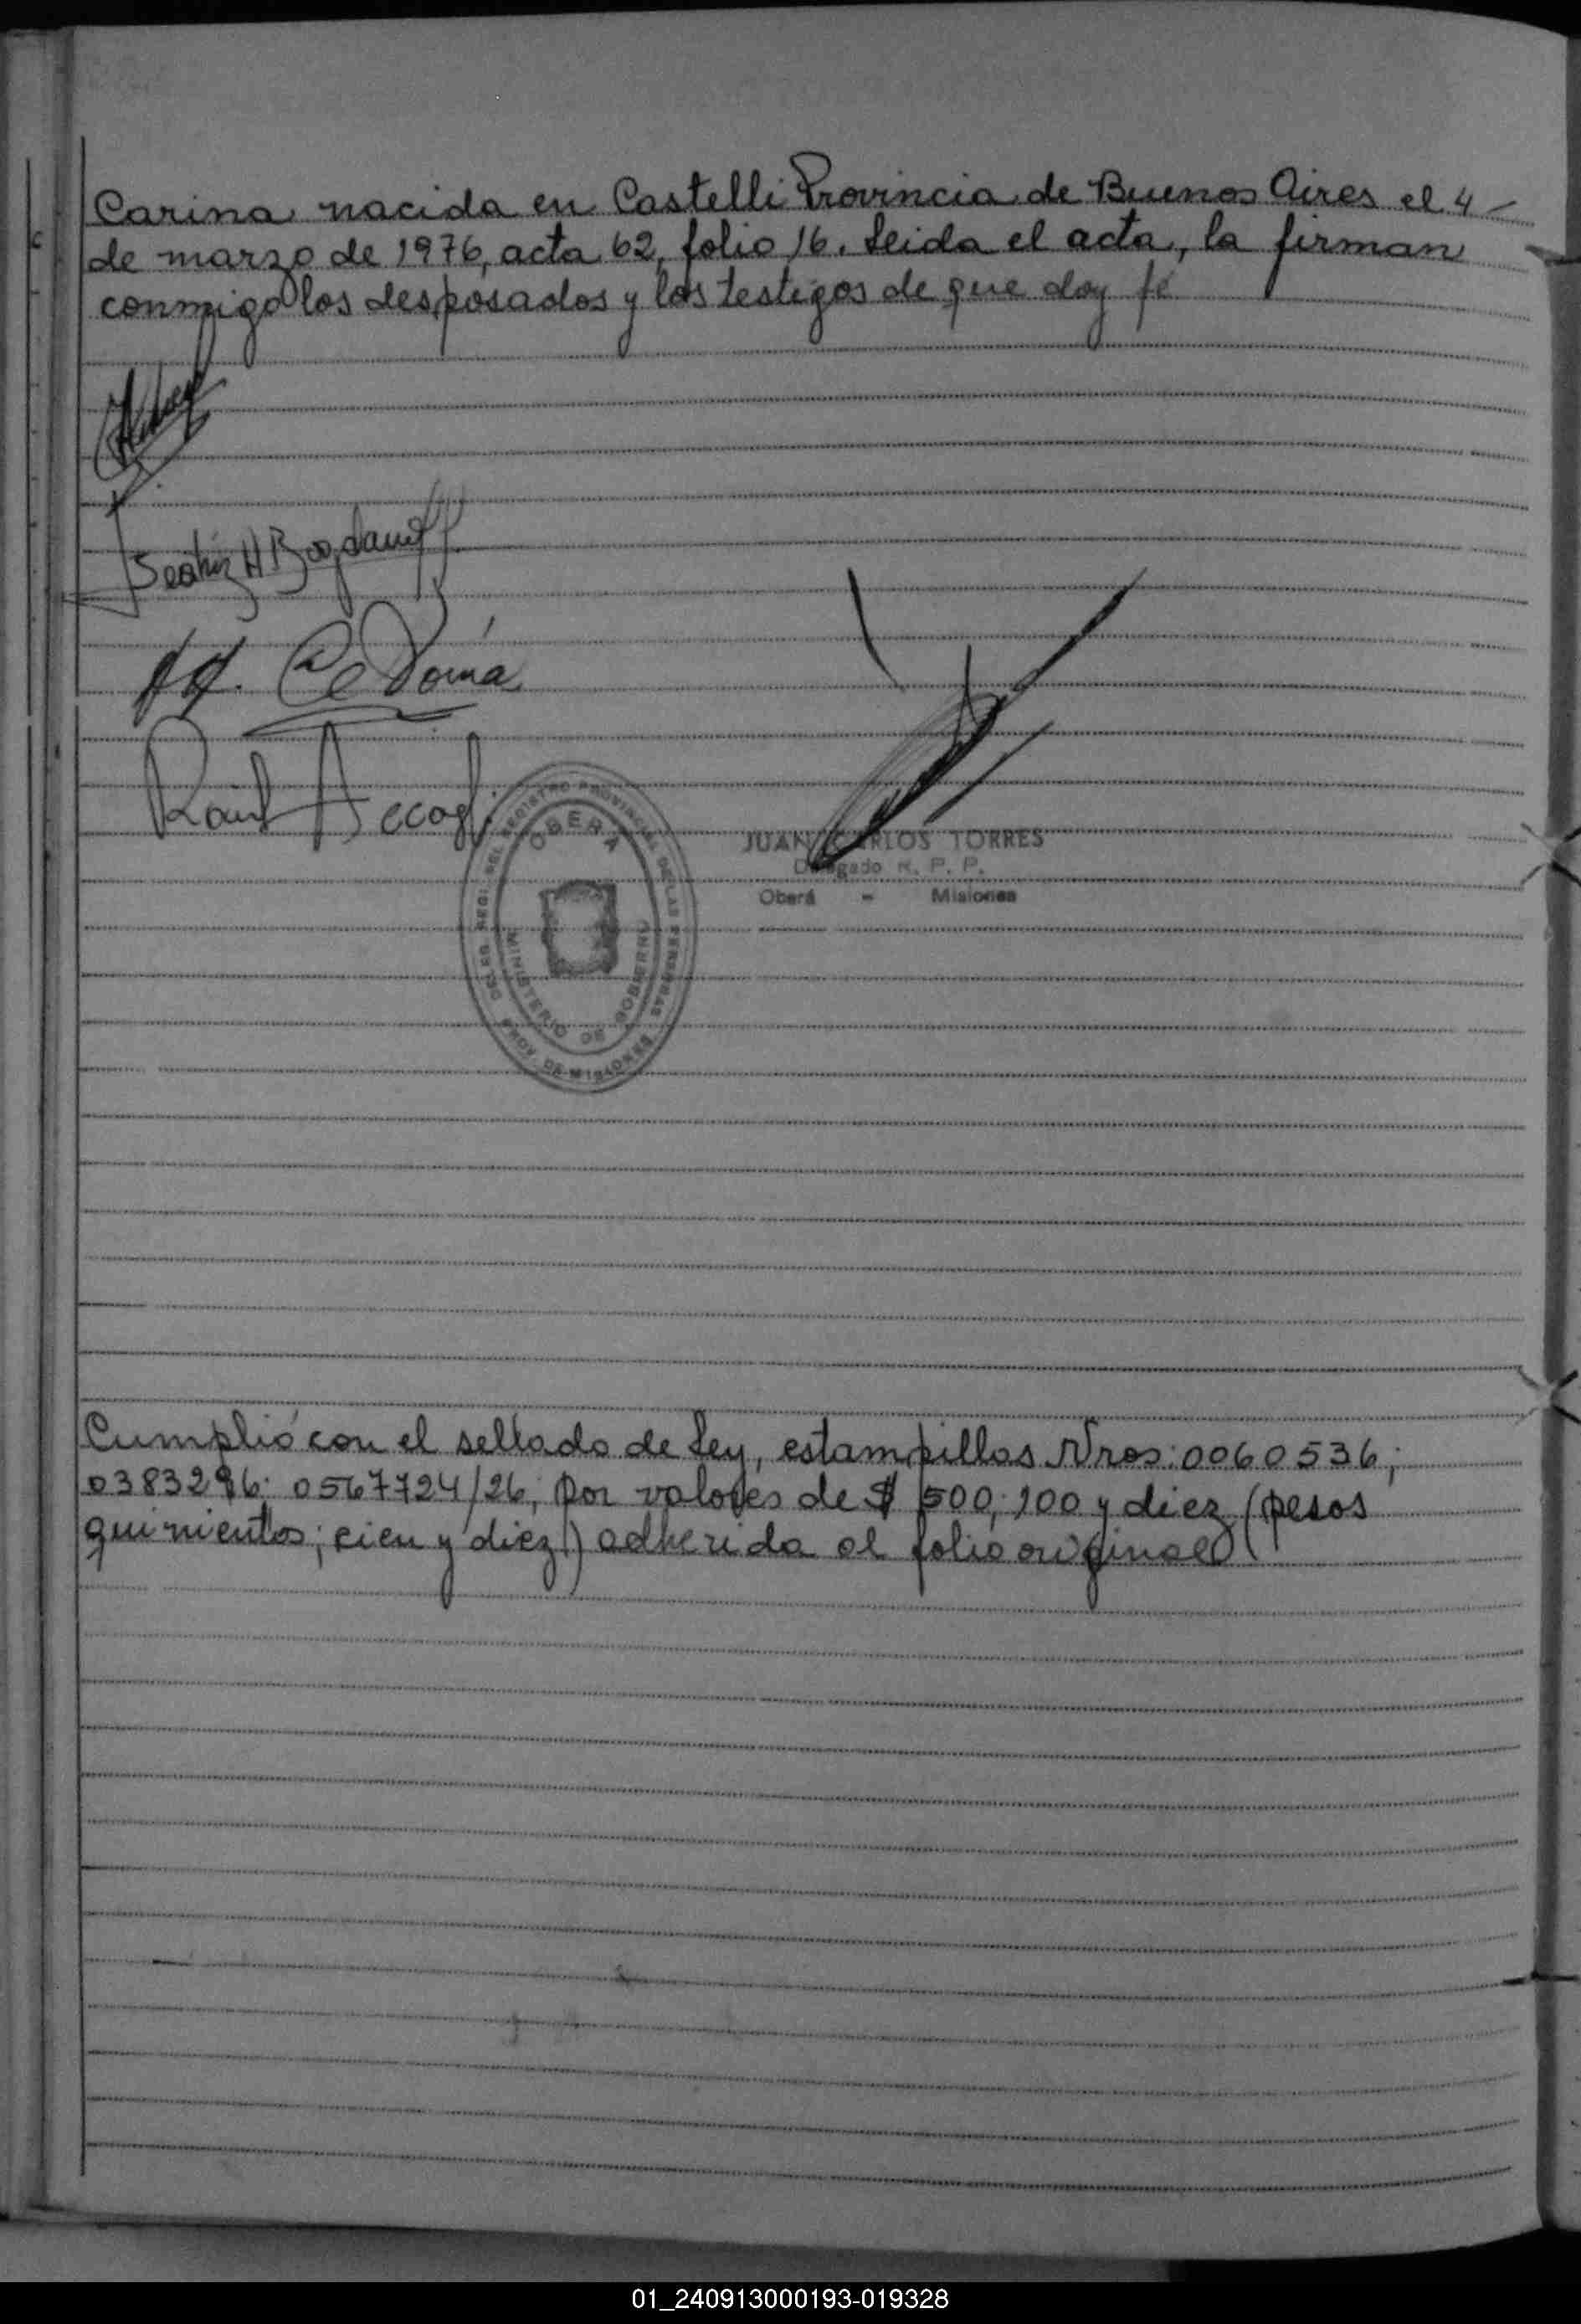 Carina nacida en Castelli Provincia de Buenos Aires el 4
de marzo de 1976, acta 62, folio 16. Leida el acta, la firman
conmigo los desposados y los testigos de que doy fé
Beatriz H Bogdanoff
Raul Accogli
OBERA
MINISTERIO DE GOBIERNO
JUAN CARLOS TORRES
Delegado R. P. P.
Oberá - Misiones
Cumplió con el sellado de Ley, estampillas Nros: 0060536;
0383296: 0567724/26; por valores de $ 500; 100 y diez (pesos
quinientos; cien y diez) adherida al folio original
01_240913000193-019328